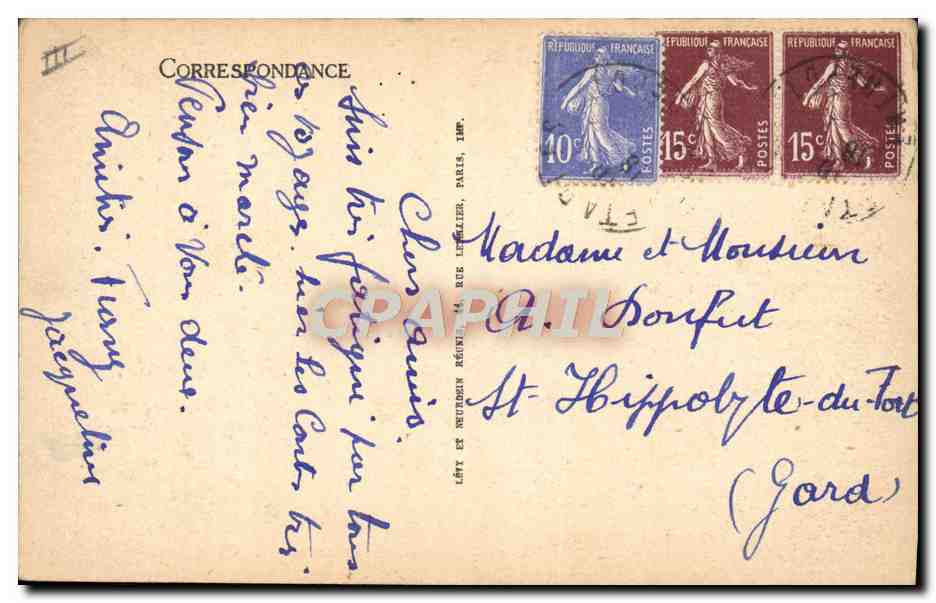 CORRESPONDANCE
Chers amis.
Suis très fatiguée par tous
ces voyages. hier les Contes très
bien marché.
à Vous deux.
Amitiés.
Jacqueline
LÉVY ET NEURDEIN RÉUNIS, 44, RUE LETELLIER, PARIS, IMP.
RÉPUBLIQUE FRANÇAISE
10c
POSTES
RÉPUBLIQUE FRANÇAISE
15c
POSTES
RÉPUBLIQUE FRANÇAISE
15c
POSTES
Madame et Monsieur
A. Donfut
St-Hippolyte-du-Fort
(Gard)
CPAPHIL
III